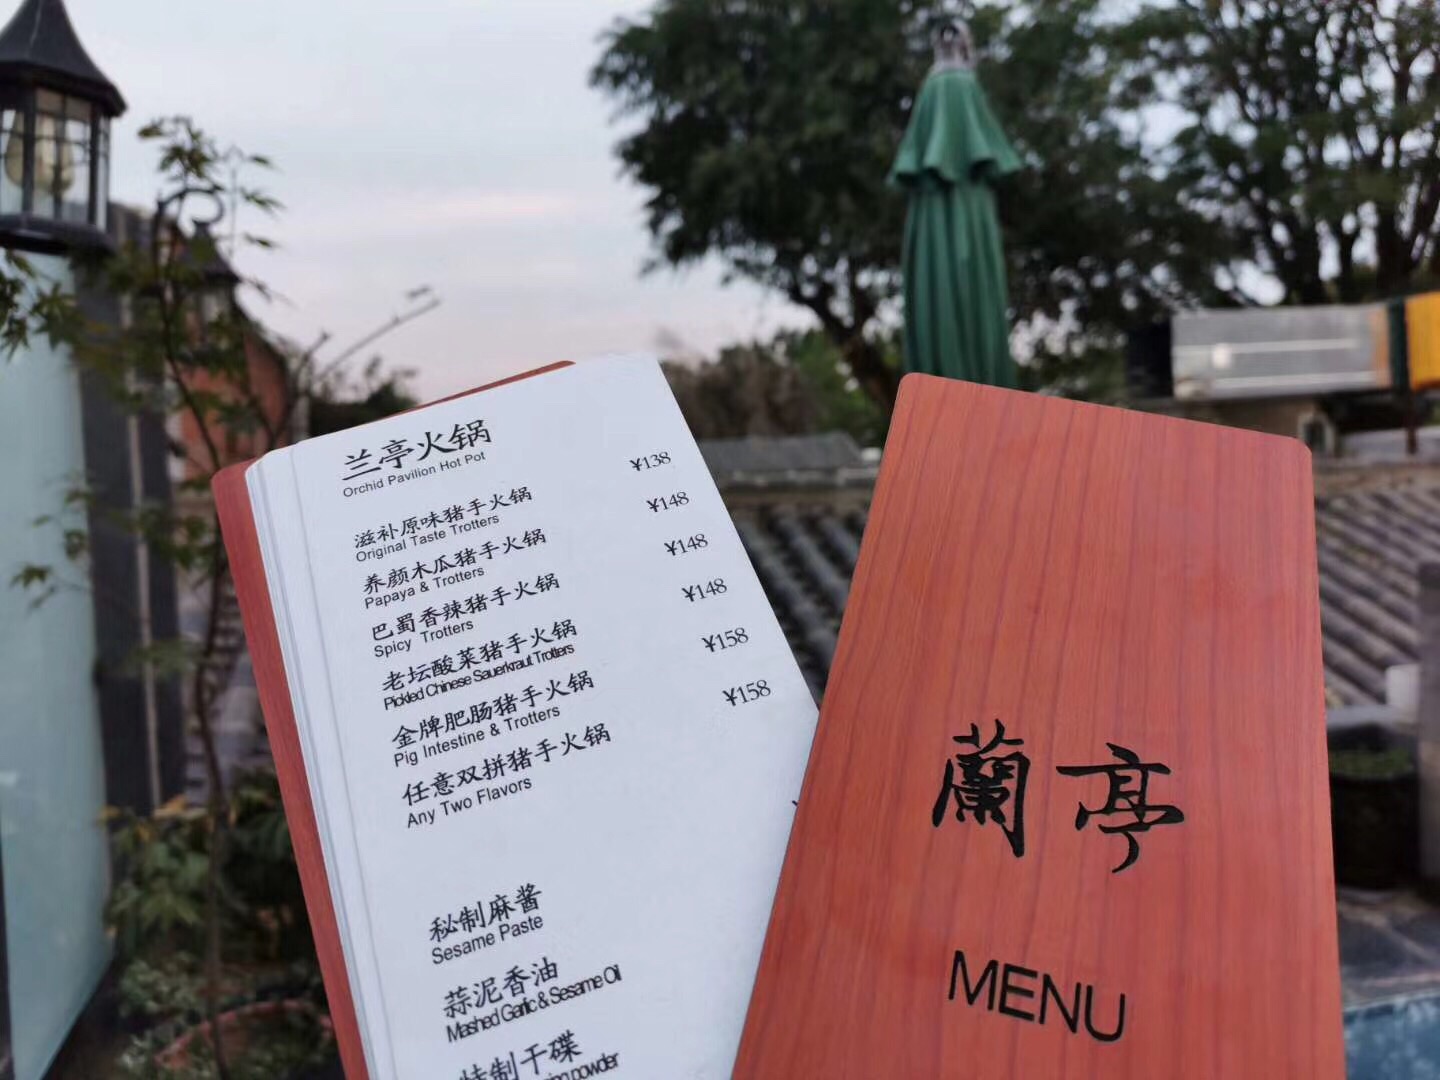 兰亭火锅
Orchid Pavilion Hot Pot
滋补原味猪手火锅 ¥138
Original Taste Trotters
养颜木瓜猪手火锅 ¥148
Papaya & Trotters
巴蜀香辣猪手火锅 ¥148
Spicy Trotters
老坛酸菜猪手火锅 ¥148
Pickled Chinese Sauerkraut Trotters
金牌肥肠猪手火锅 ¥158
Pig Intestine & Trotters
任意双拼猪手火锅 ¥158
Any Two Flavors
秘制麻酱
Sesame Paste
蒜泥香油
Mashed Garlic & Sesame Oil
特制干碟
powder
蘭亭
MENU